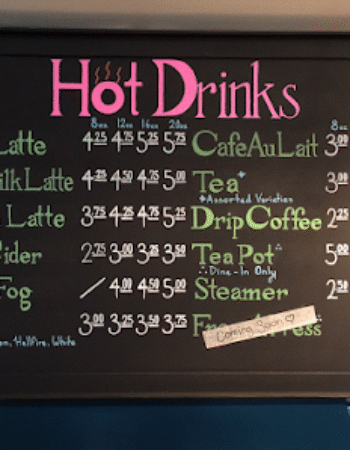 Hot Drinks
8oz 12oz 16oz 20oz 8oz
Latte 4.25 4.75 5.25 5.75 Cafe Au Lait 3.00
ilk Latte 4.25 4.50 4.75 5.00 Tea* 3.00
*Assorted Varieties
Latte 3.75 4.25 4.75 5.25 Drip Coffee 2.25
ider 2.75 3.00 3.25 3.50 Tea Pot∴ 5.00
∴Dine-In Only
Fog / 4.00 4.50 5.00 Steamer 2.50
3.00 3.25 3.50 3.75
Coming Soon ♡
Hellfire, White